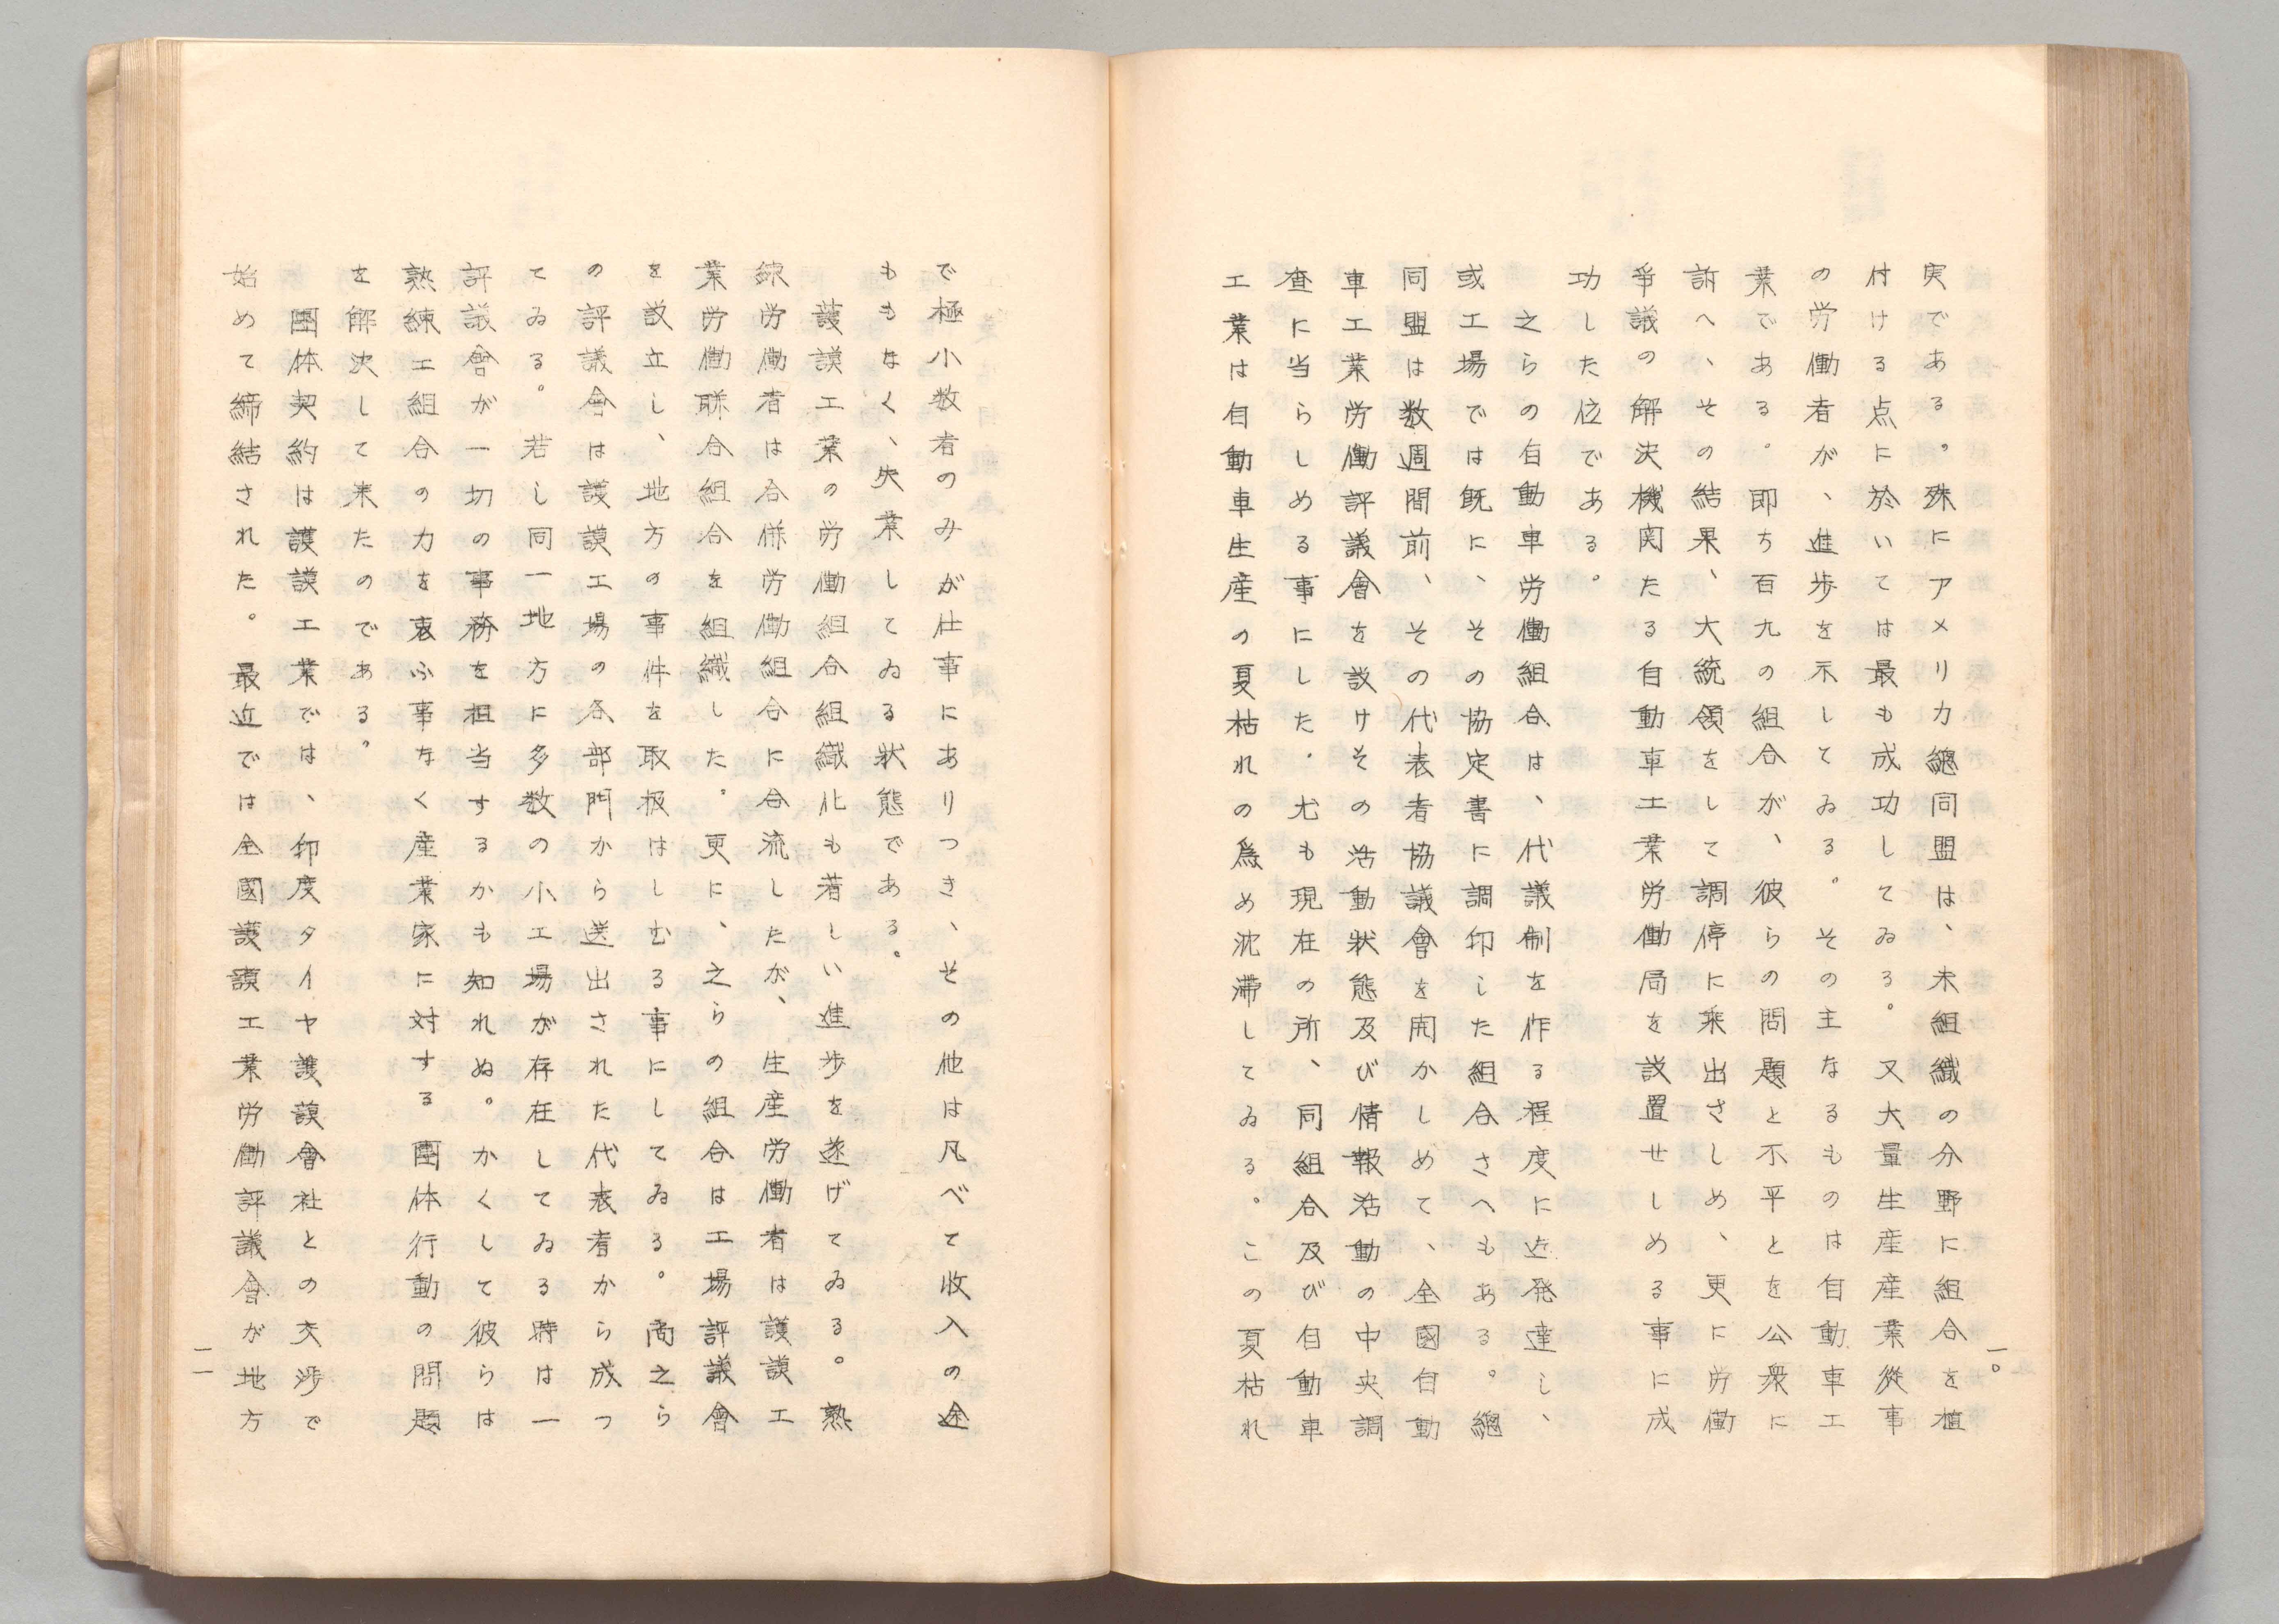 一〇
実である。殊にアメリカ總同盟は、未組織の分野に組合を植
付ける点に於いては最も成功してゐる。又大量生産産業從事
の労働者が、進歩を示してゐる。その主なるものは自動車工
業である。即ち百九の組合が、彼らの問題と不平とを公衆に
訴へ、その結果、大統領をして調停に乗出さしめ、更に労働
爭議の解決機関たる自動車工業労働局を設置せしめる事に成
功した位である。
之らの自動車労働組合は、代議制を作る程度に迠発達し、
或工場では既に、その協定書に調印した組合さへもある。總
同盟は数週間前、その代表者協議會を開かしめて、全國自動
車工業労働評議會を設けその活動狀態及び情報活動の中央調
査に当らしめる事にした．尤も現在の所、同組合及び自動車
工業は自動車生産の夏枯れの為め沈滯してゐる。この夏枯れ
で極小数者のみが仕事にありつき、その他は凡べて收入の途
もなく、失業してゐる狀態である。
護謨工業の労働組合組織化も著しい進歩を遂げてゐる。熟
練労働者は合併労働組合に合流したが、生産労働者は護謨工
業労働聯合組合を組織した。更に、之らの組合は工場評議會
を設立し、地方の事件を取扱はしむる事にしてゐる。尚之ら
の評議會は護謨工場の各部門から送出された代表者から成つ
てゐる。若し同一地方に多数の小工場が存在してゐる時は一
評議會が一切の事務を担当するかも知れぬ。かくして彼らは
熟練工組合の力を衷ふ事なく産業家に対する團体行動の問題
を解決して来たのである。
團体契約は護謨工業では、印度タイヤ護謨會社との交渉で
始めて締結された。最近では全國護謨工業労働評議會が地方
一一